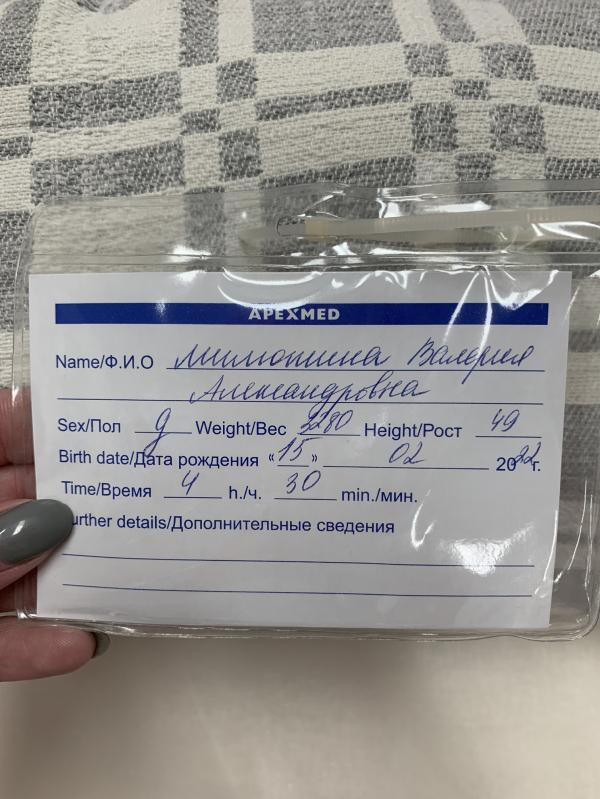 APEXMED
Name/Ф.И.О Валерия
Александровна
Sex/Пол д Weight/Вес 3280 Height/Рост 49
Birth date/Дата рождения «15» 02 2022г.
Time/Время 4 h./ч. 30 min./мин.
urther details/Дополнительные сведения